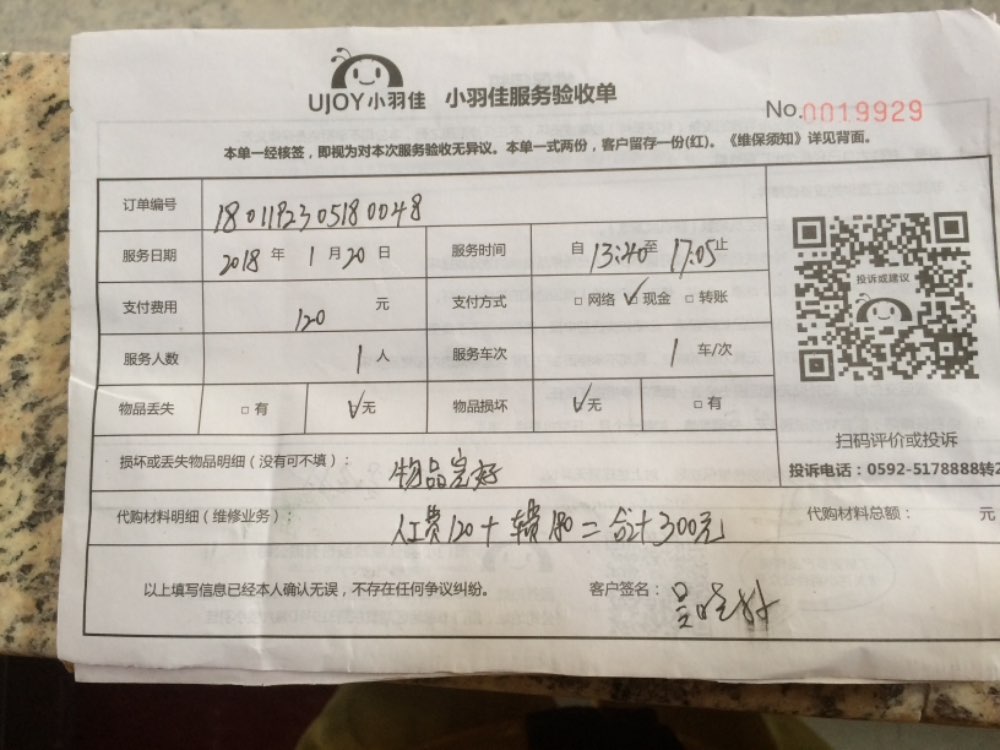 UJOY小羽佳 小羽佳服务验收单
No.0019929
本单一经核签，即视为对本次服务验收无异议。本单一式两份，客户留存一份(红)。《维保须知》详见背面。
订单编号 1801192305180048
服务日期 2018 年 1 月 20 日 服务时间 自 13:40 至 17:05 止
支付费用 120 元 支付方式 □ 网络 ✓ 现金 □ 转账
服务人数 1 人 服务车次 1 车/次
物品丢失 □ 有 ✓无 物品损坏 ✓无 □ 有
投诉或建议
扫码评价或投诉
投诉电话：0592-5178888转2
损坏或丢失物品明细（没有可不填）： 物品完好
代购材料明细（维修业务）： 人工费120＋车费180＝合计300元 代购材料总额： 元
以上填写信息已经本人确认无误，不存在任何争议纠纷。 客户签名：